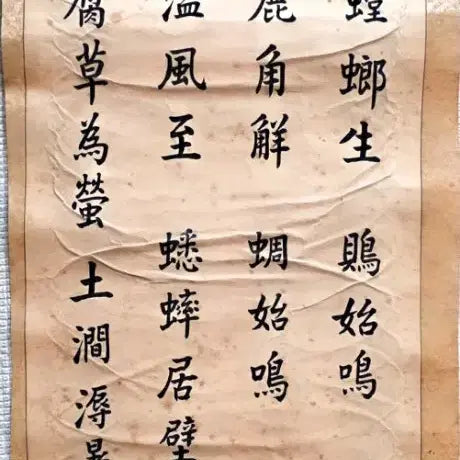 螳螂生 鵙始鳴
鹿角觧 蜩始鳴
温風至 蟋蟀居壁
腐草為螢 土潤溽暑